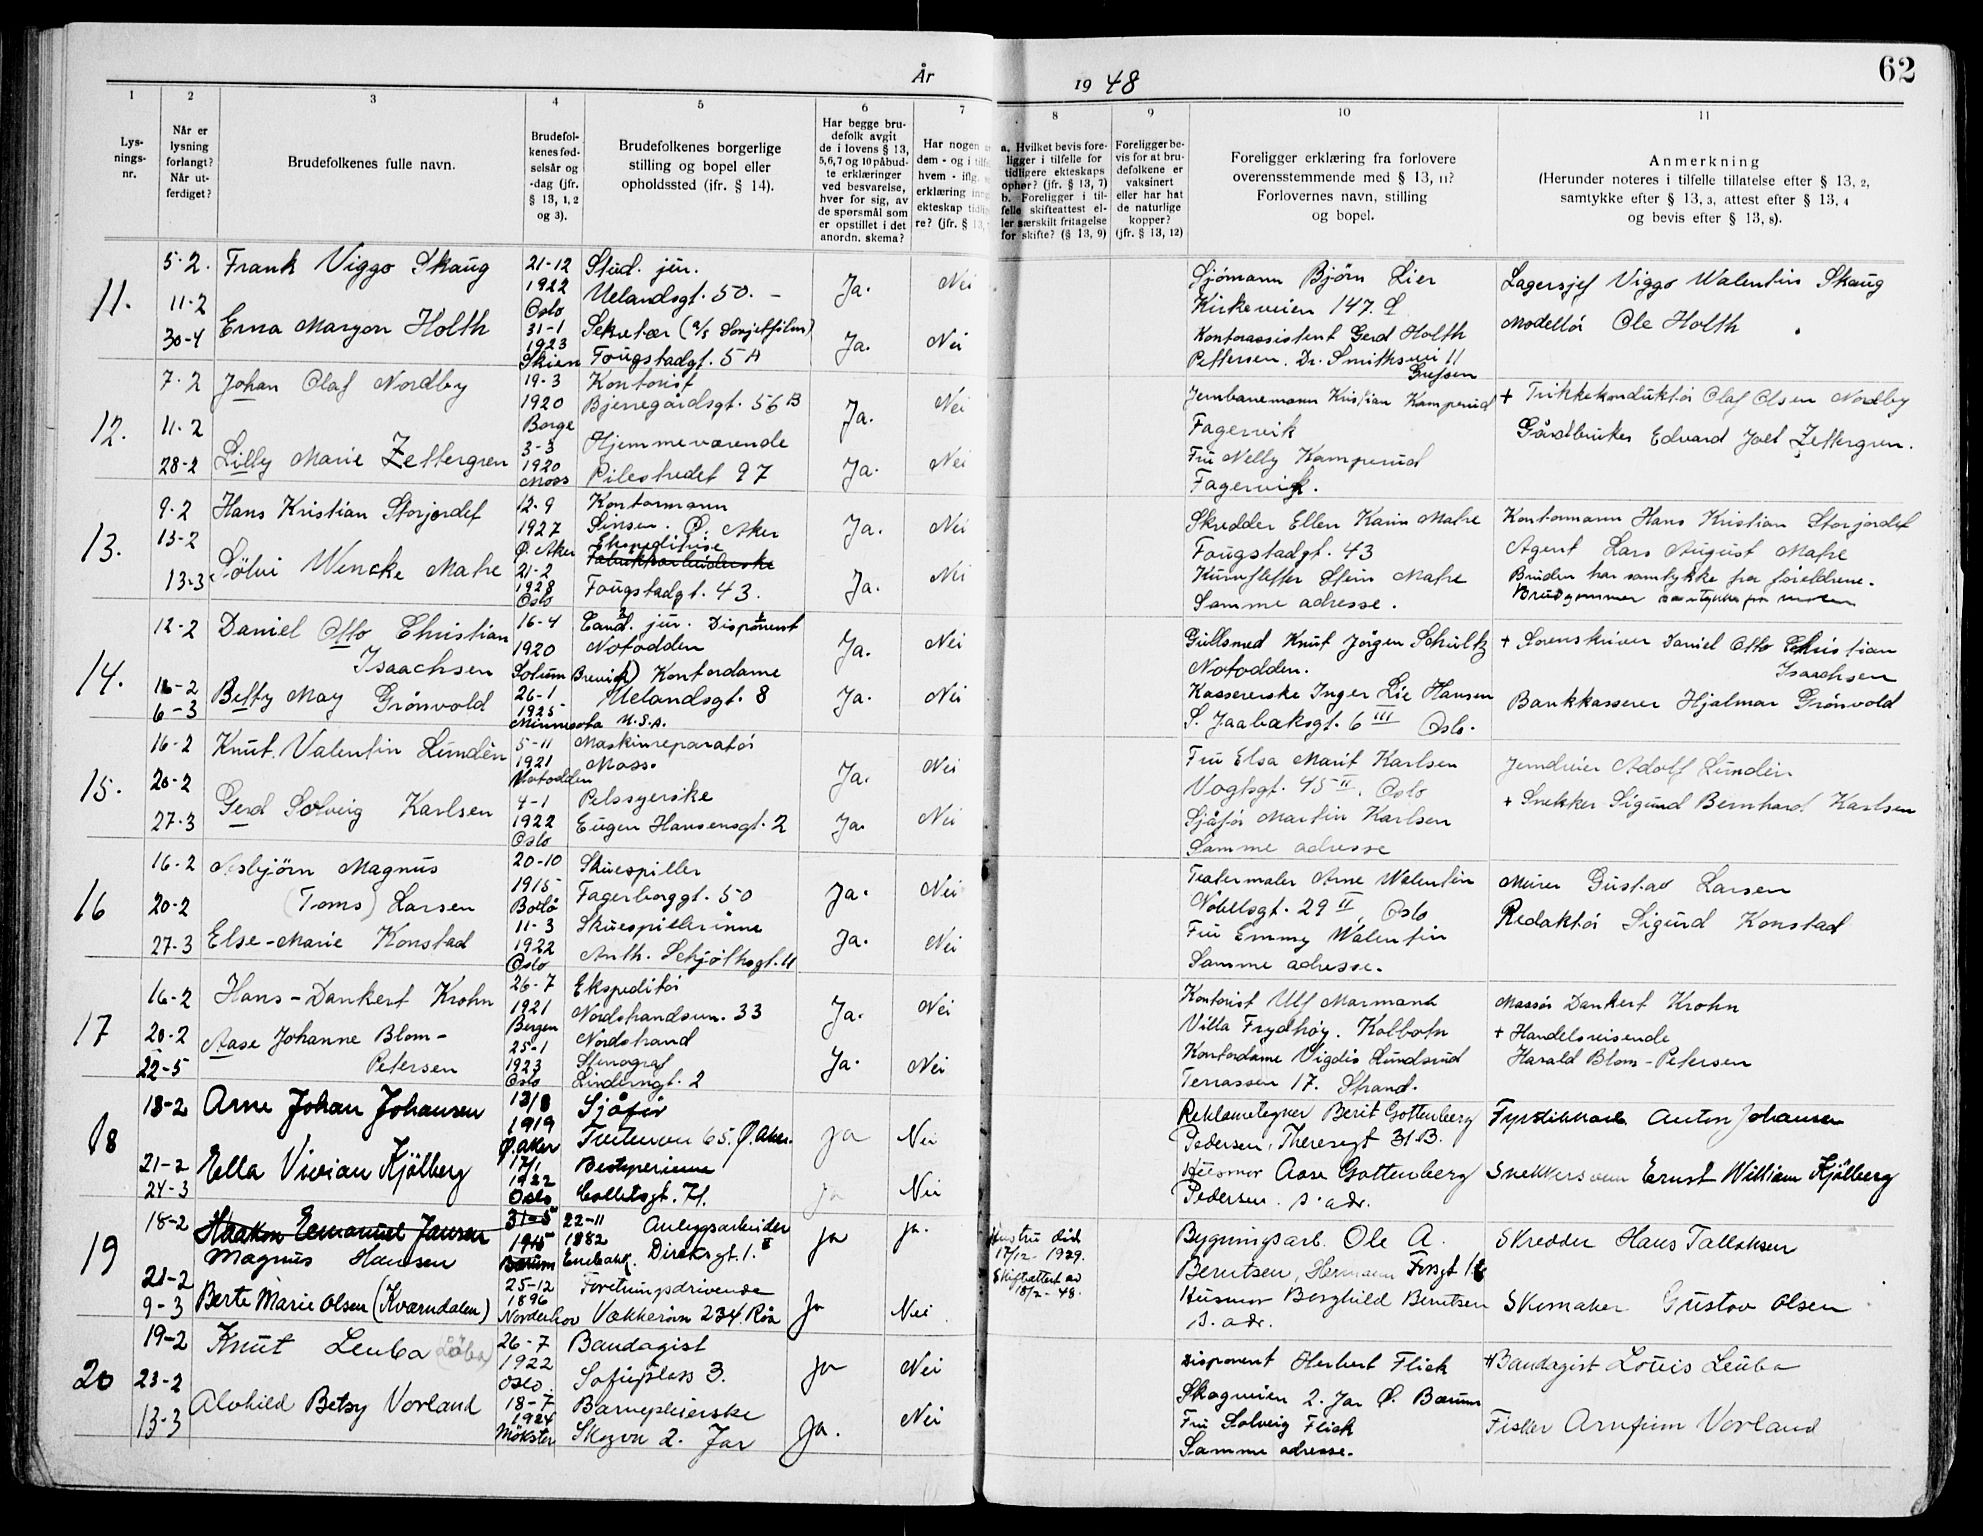 62
År 1948
1 2 3 4 5 6 7 8 9 10 11
Lysningsnr.
Når er
lysning
forlangt?
Når utferdiget?
Brudefolkenes fulle navn.
Brudefolkenes fødselsår og
-dag (jfr.
§ 13, 1, 2
og 3).
Brudefolkenes borgerlige
stilling og bopel eller
opholdssted (jfr. § 14).
Har begge brudefolk avgit
de i lovens § 13,
5, 6, 7 og 10 påbudte erklæringer
ved besvarelse,
hver for sig, av
de spørsmål som
er opstillet i det
anordn. skema?
Har nogen
dem - og i
hvem - iflg.
erklæring
ekteskap
re? (jfr. § 13,
a. Hvilket bevis foreligger i tilfelle for
tidligere ekteskaps
ophør? (jfr. § 13, 7)
b. Foreligger i tilfelle skifteattest eller særskilt fritagelse
for skifte? (§ 13, 9)
Foreligger bevis for at brudefolkene er
vaksinert
eller har hat
de naturlige
kopper?
(jfr. § 13, 12)
Foreligger erklæring fra forlovere
overensstemmende med § 13, 11?
Forlovernes navn, stilling
og bopel.
Anmerkning
(Herunder noteres i tilfelle tillatelse efter § 13, 2,
samtykke efter § 13, 3, attest efter § 13, 4
og bevis efter § 13, 8).
11.
5-2.
11-2
30-4
Frank Viggo Skaug
Erna Margon Holth
21-12
1922
Oslo
31-1
1923
Skien
Stud. jur.
Uelandsgt. 50. -
Sekretær (a/s Sovjetfilm)
Fougstadgt. 5 A
Ja.
Ja.
Nei
Nei
Sjømann Bjørn Lier
Kirkeveien 147.
Kontorassistent Gerd Holth
Pettersen. Dr. Smithsvei 11
Grefsen
Lagersjef Viggo Walentin Skaug
Modellør Ole Holth
12.
7-2
11-2
28-2
Johan Olaf Nordby
Lilly Marie Zettergren
19-3
1920
Borge
3-3
1920
Moss
Kontorist
Bjerregårdsgt. 56 B
Hjemmeværende
Pilestredet 97
Ja.
Ja.
Nei
Nei
Jernbanemann Kristian Kamperud
Fagervik
Fru Nelly Kamperud
Fagervik.
+ Trikkekonduktør Olaf Olsen Nordby
Gårdbruker Edvard Joel Zettergren.
13.
9-2
13-2
13-3
Hans Kristian Storjordet
Sölvi Wencke Matre
12-9
1927
Ø. Aker
21-2
1928
Oslo
Kontormann
Sinsen. Ø. Aker
Ekspeditrise
Fabrikkarbeiderske
Fougstadgt. 43.
Ja.
Ja.
Nei
Nei
Skredder Ellen Karin Matre
Fougstadgt. 43
Stein Matre
Samme adresse.
Kontormann Hans Kristian Storjordet
Agent Lars August Matre
Bruden har samtykke fra foreldrene.
Brudgommen samtykke fra moren
14.
12-2
16-2
6-3
Daniel Otto Christian
Isaachsen
Betty May Grønvold
16-4
1920
Solum (Brevik)
26-1
1925
Minnesota U.S.A.
Cand. jur. Disponent
Notodden
Kontordame
Uelandsgt. 8
Ja.
Ja.
Nei
Nei
Gullsmed Knut Jørgen Schultz
Notodden.
Kassererske Inger Lie Hansen
S. Jaabæksgt. 6 III Oslo.
+ Sorenskriver Daniel Otto Christian
Isaachsen
Bankkasserer Hjalmar Grønvold
15.
16-2
20-2
27-3
Knut Valentin Lundèn
Gerd Solveig Karlsen
5-11
1921
Notodden
4-1
1922
Oslo
Maskinreparatør
Moss.
Pelssyerske
Eugen Hansensgt. 2
Ja.
Ja.
Nei
Nei
Fru Elsa Marit Karlsen
Vogtsgt. 45 II, Oslo
Sjåfør Martin Karlsen
Samme adresse
Jerndreier Adolf Lundèn
+ Snekker Sigurd Bernhard Karlsen
16
16-2
20-2
27-3
Asbjörn Magnus
(Toms) Larsen
Else-Marie Konstad
20-10
1915
Bodø
11-3
1922
Oslo
Skuespiller
Fagerborggt. 50
Skuespillerinne
Anth. Schjøthsgt. 11
Ja.
Ja.
Nei
Nei
Teatermaler Arne Walentin
Nobelsgt. 29 II, Oslo
Fru Emmy Walentin
Samme adresse.
Murer Gustav Larsen
Redaktør Sigurd Konstad
17
16-2
20-2
22-5
Hans-Dankert Krohn
Aase Johanne Blom-
Petersen
26-7
1921
Bergen
25-1
1923
Oslo
Ekspeditør
Nordstrandsvn. 33
Nordstrand
Stenograf
Linderngt. 2
Ja.
Ja.
Nei
Nei
Kontorist Ulf Marmand
Villa Frydhøy. Kolbotn
Kontordame Vigdis Sundsrud
Terrassen 17. Strand.
Massør Dankert Krohn
+ Handelsreisende
Harald Blom-Petersen
18
18-2
21-2
24-3
Arne Johan Johansen
Ella Vivian Kjölberg
13/8
1919
Ø. Aker
17/1
1922
Oslo
Sjåfør
Tvetenvn 65. Ø. Aker.
Bestyrerinne
Colletsgt. 71.
Ja
Ja
Nei
Nei
Reklametegner Berit Gottenberg
Pedersen, Theresegt 31 B.
Husmor Aase Gottenberg
Pedersen. s. adr.
Fyrdirektør Anton Johansen
Snekkersvenn Ernst William Kjölberg
19
18-2
21-2
9-3
Haakon Emanuel Jansen
Magnus Hansen
Berte Marie Olsen (Kværndalen)
31-5
1915
Bærum
22-11
1882
Enebakk.
25-12
1896
Norderhov
Anleggsarbeider
Diriksgt. 1.
Foretningsdrivende
Vækkerøvn 234. Røa
Ja
Ja
Ja.
Nei
Hustru død
17/12-1929.
Skifteattest av
18/2-48.
Bygningsarb. Ole A.
Berntsen, Hermann Fossgt 16
Husmor Borghild Berntsen
s. adr.
Skredder Hans Tallaksen
Skomaker Gustav Olsen
20
19-2
23-2
13-3
Knut Leuba (Löba)
Alvhild Betsy Vorland
26-7
1922
Oslo
18-7
1924
Møkster
Bandagist
Sofiesplass 3.
Barnepleierske
Skogvn 2. Jar
Ja
Ja.
Nei
Nei
Disponent Herbert Flick
Skogveien 2. Jar Ø. Bærum
Fru Solveig Flick
Samme adresse.
+ Bandagist Louis Leuba
Fisker Arnfinn Vorland